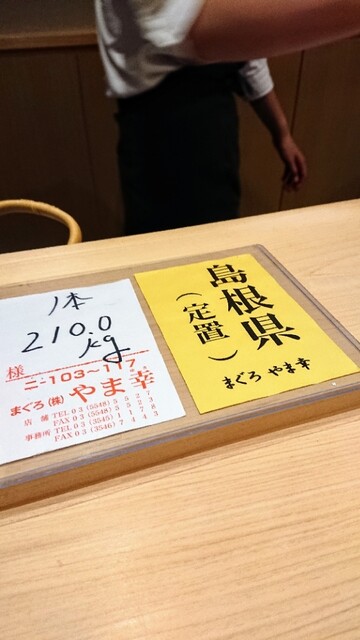 1本
210.0
kg
様
ニ-103~117
まぐろ(株)やま幸
店舗 TEL 03(5548)5527
FAX 03(5548)5513
事務所 TEL 03(3545)1178
FAX 03(3546)7443
島根県
(定置)
まぐろ やま幸